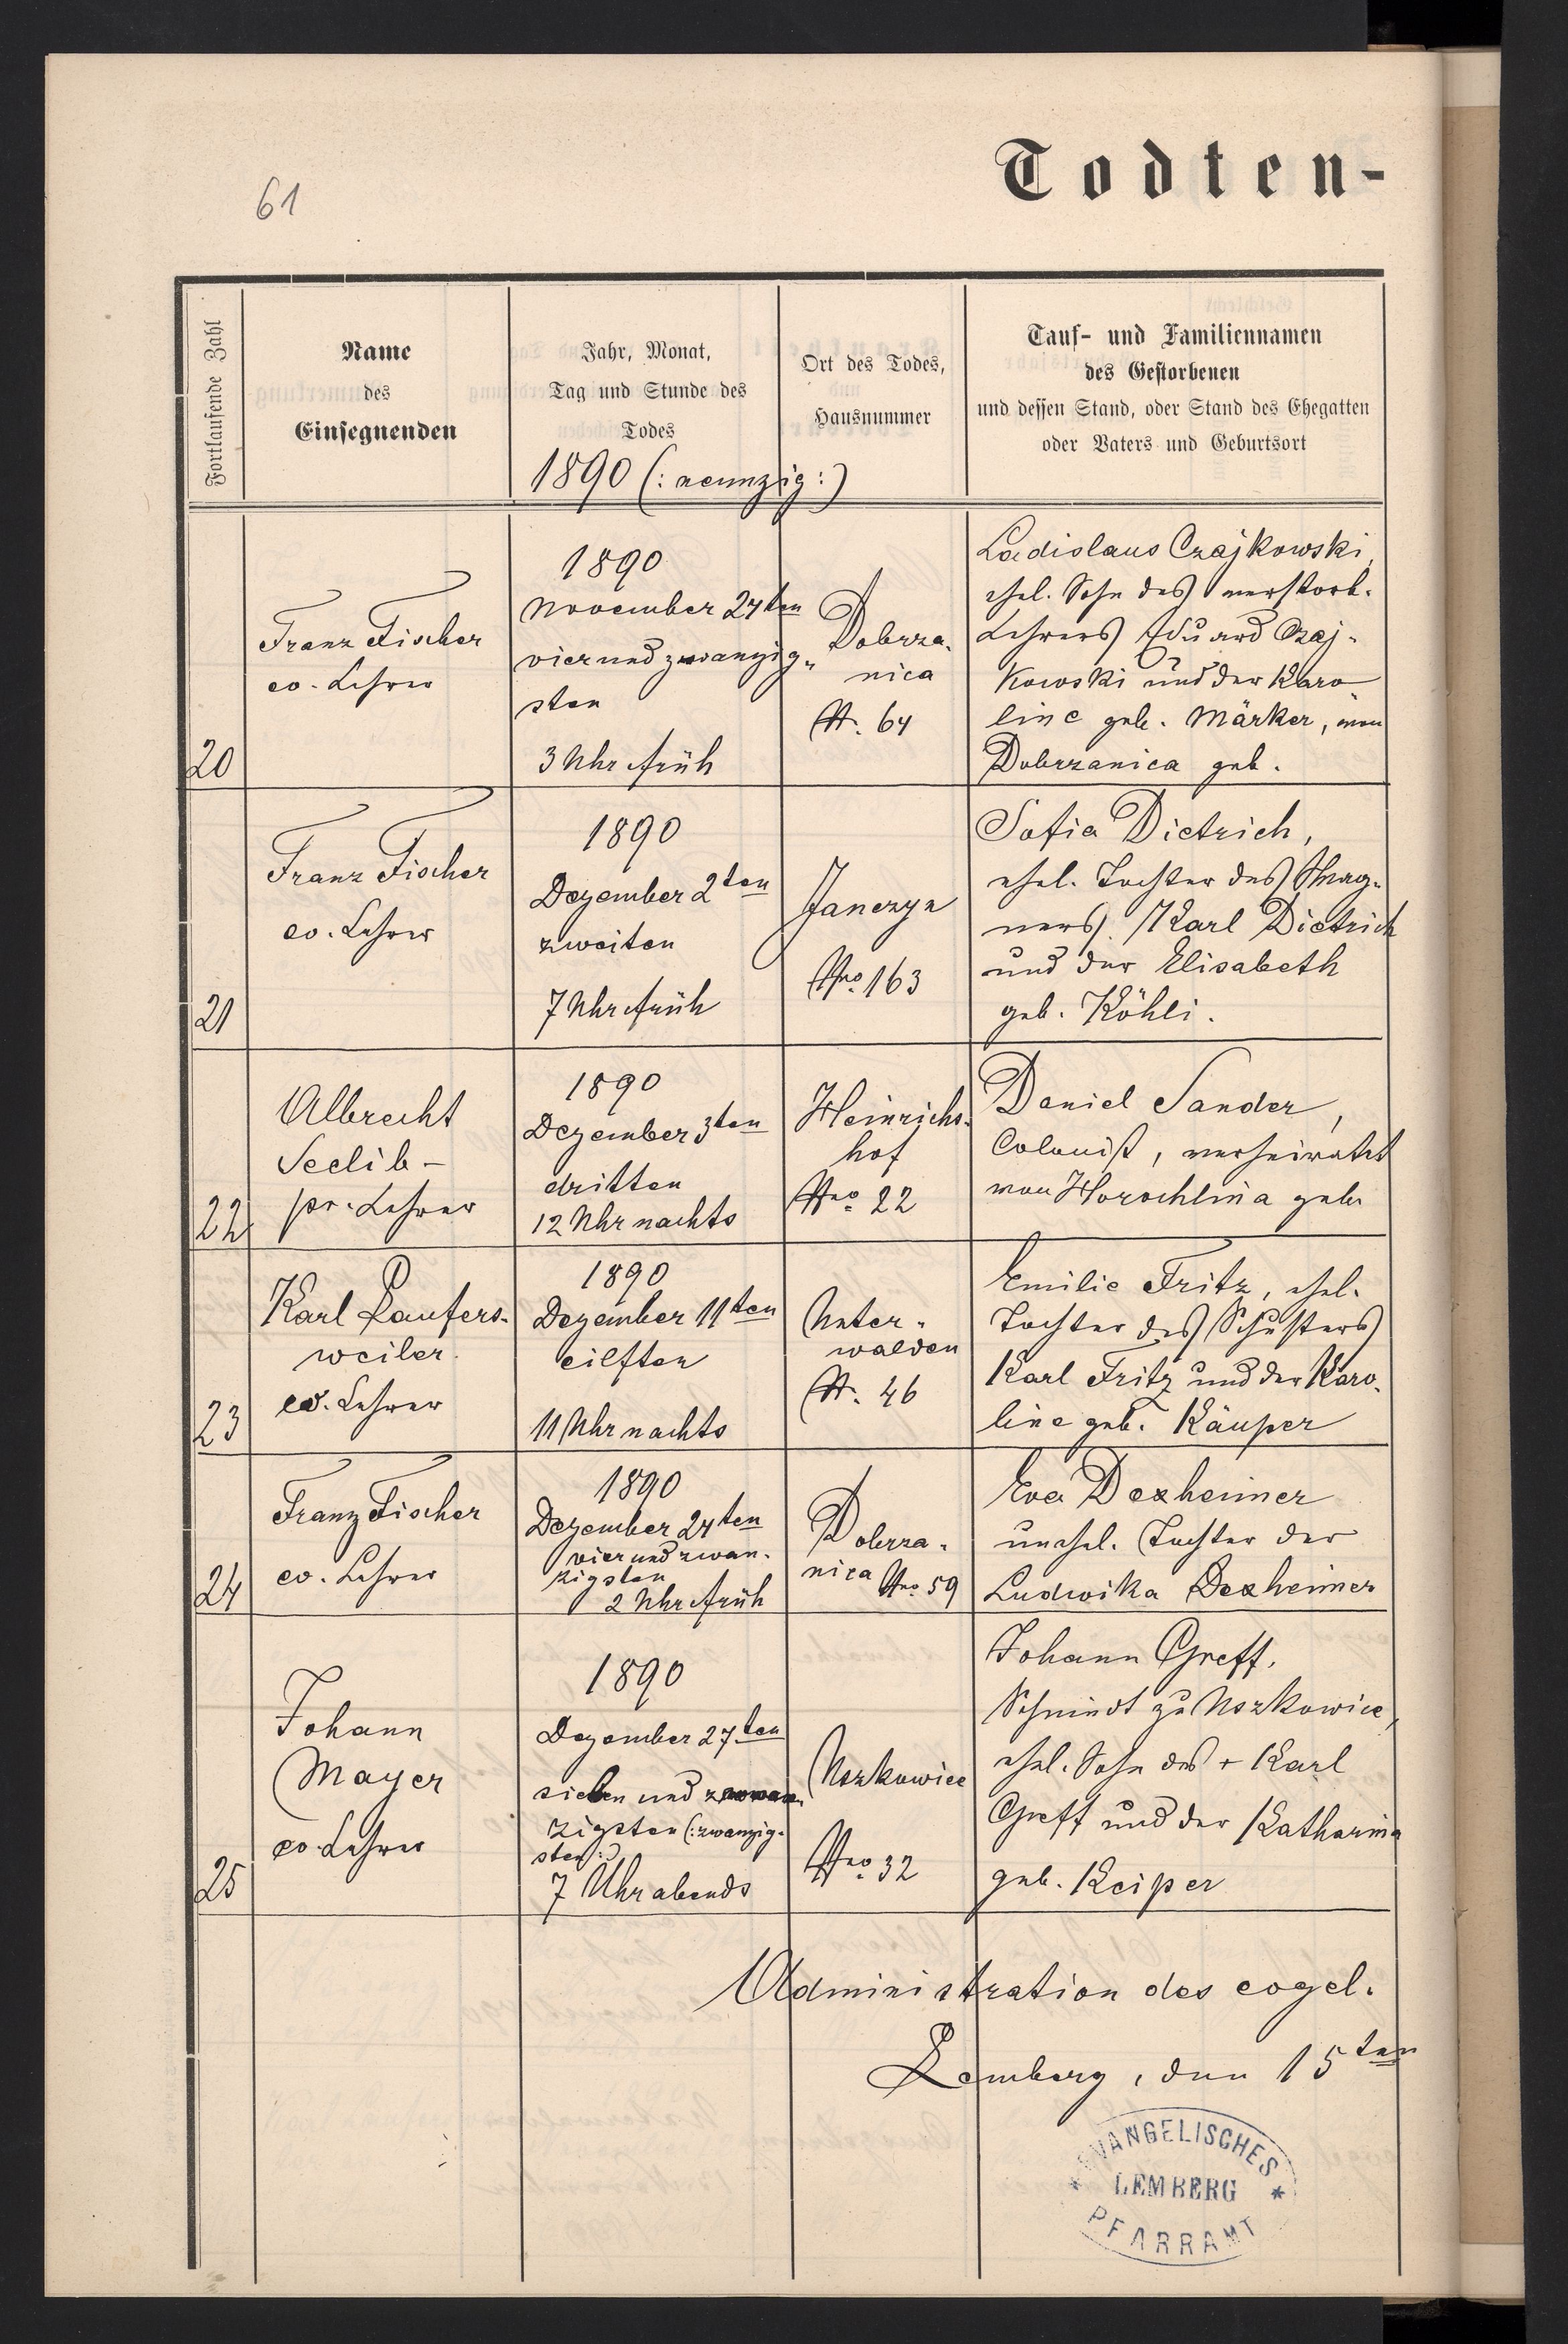 Todten-
61
Fortlaufende Zahl
Name
des
Einsegnenden
Jahr, Monat,
Tag und Stunde des
Todes
1890 (: neunzig :)
Ort des Todes,
Hausnummer
Tauf- und Familiennamen
des Gestorbenen
und dessen Stand, oder Stand des Ehegatten
oder Vaters und Geburtsort
20
Franz Fischer
ev. Lehrer
1890
November 24ten
vierundzwanzig-
sten
3 Uhr früh
Dobrza-
nica
N. 64
Ladislaus Czajkowski,
ehel. Sohn des verstorb.
Lehrers Eduard Czaj-
kowski und der Karo-
line geb. Märker, von
Dobrzanica geb.
21
Franz Fischer
ev. Lehrer
1890
Dezember 2ten
zweiten
7 Uhr früh
Janczyn
Nro. 163
Sofia Dietrich,
ehel. Tochter des Wag-
ners Karl Dietrich
und der Elisabeth
geb. Köhli.
22
Albrecht
Seelib-
pr. Lehrer
1890
Dezember 3ten
dritten
12 Uhr nachts
Heinrichs-
hof
Nro. 22
Daniel Sander,
Colonist, verheiratet
von Horochlina geb.
23
Karl Laufers-
weiler
ev. Lehrer
1890
Dezember 11ten
eilften
11 Uhr nachts
Unter-
walden
N. 46
Emilie Fritz, ehel.
Tochter des Schusters
Karl Fritz und der Karo-
line geb. Käuper
24
Franz Fischer
ev. Lehrer
1890
Dezember 24ten
vier und zwan-
zigsten
2 Uhr früh
Dobrza-
nica Nro. 59
Eva Dexheimer
unehel. Tochter der
Ludwika Dexheimer
25
Johann
Mayer
ev. Lehrer
1890
Dezember 27ten
sieben und zwan-
zigsten (: zwanzig-
sten :)
7 Uhr abends
Uszkowice
Nro. 32
Johann Greff,
Schmidt zu Uszkowice,
ehel. Sohn des + Karl
Greff und der Katharina
geb. Keiper
Administration des evgel.
Lemberg, den 15ten
EVANGELISCHES
* LEMBERG *
PFARRAMT